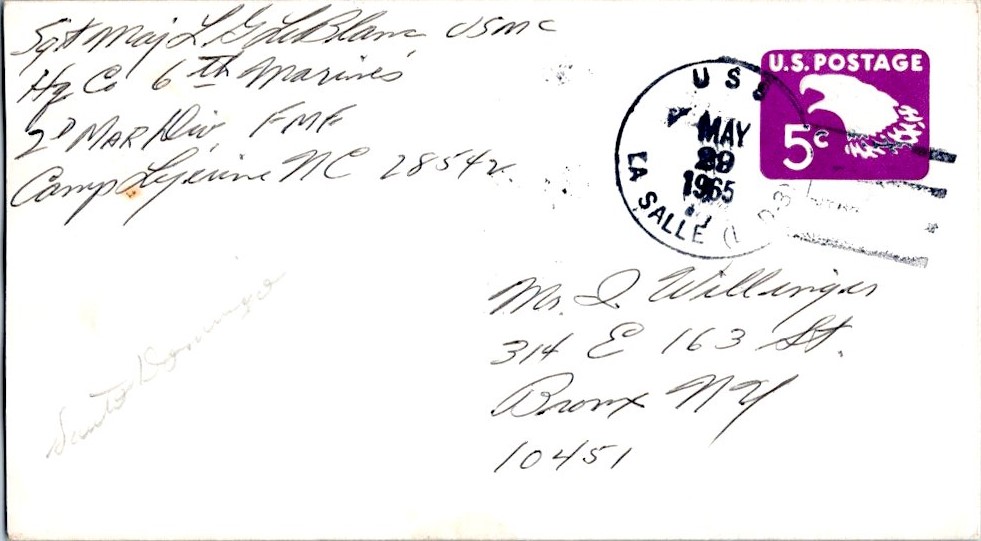 Sgt Maj L G LeBlanc USMC
Hq Co 6th Marines
2D MAR Div, FMF
Camp Lejeune NC 28542
U.S. POSTAGE
5c
USS
MAY
29
1965
LA SALLE
Santo Domingo
Mr. I. Willinger
314 E 163 St.
Bronx NY
10451